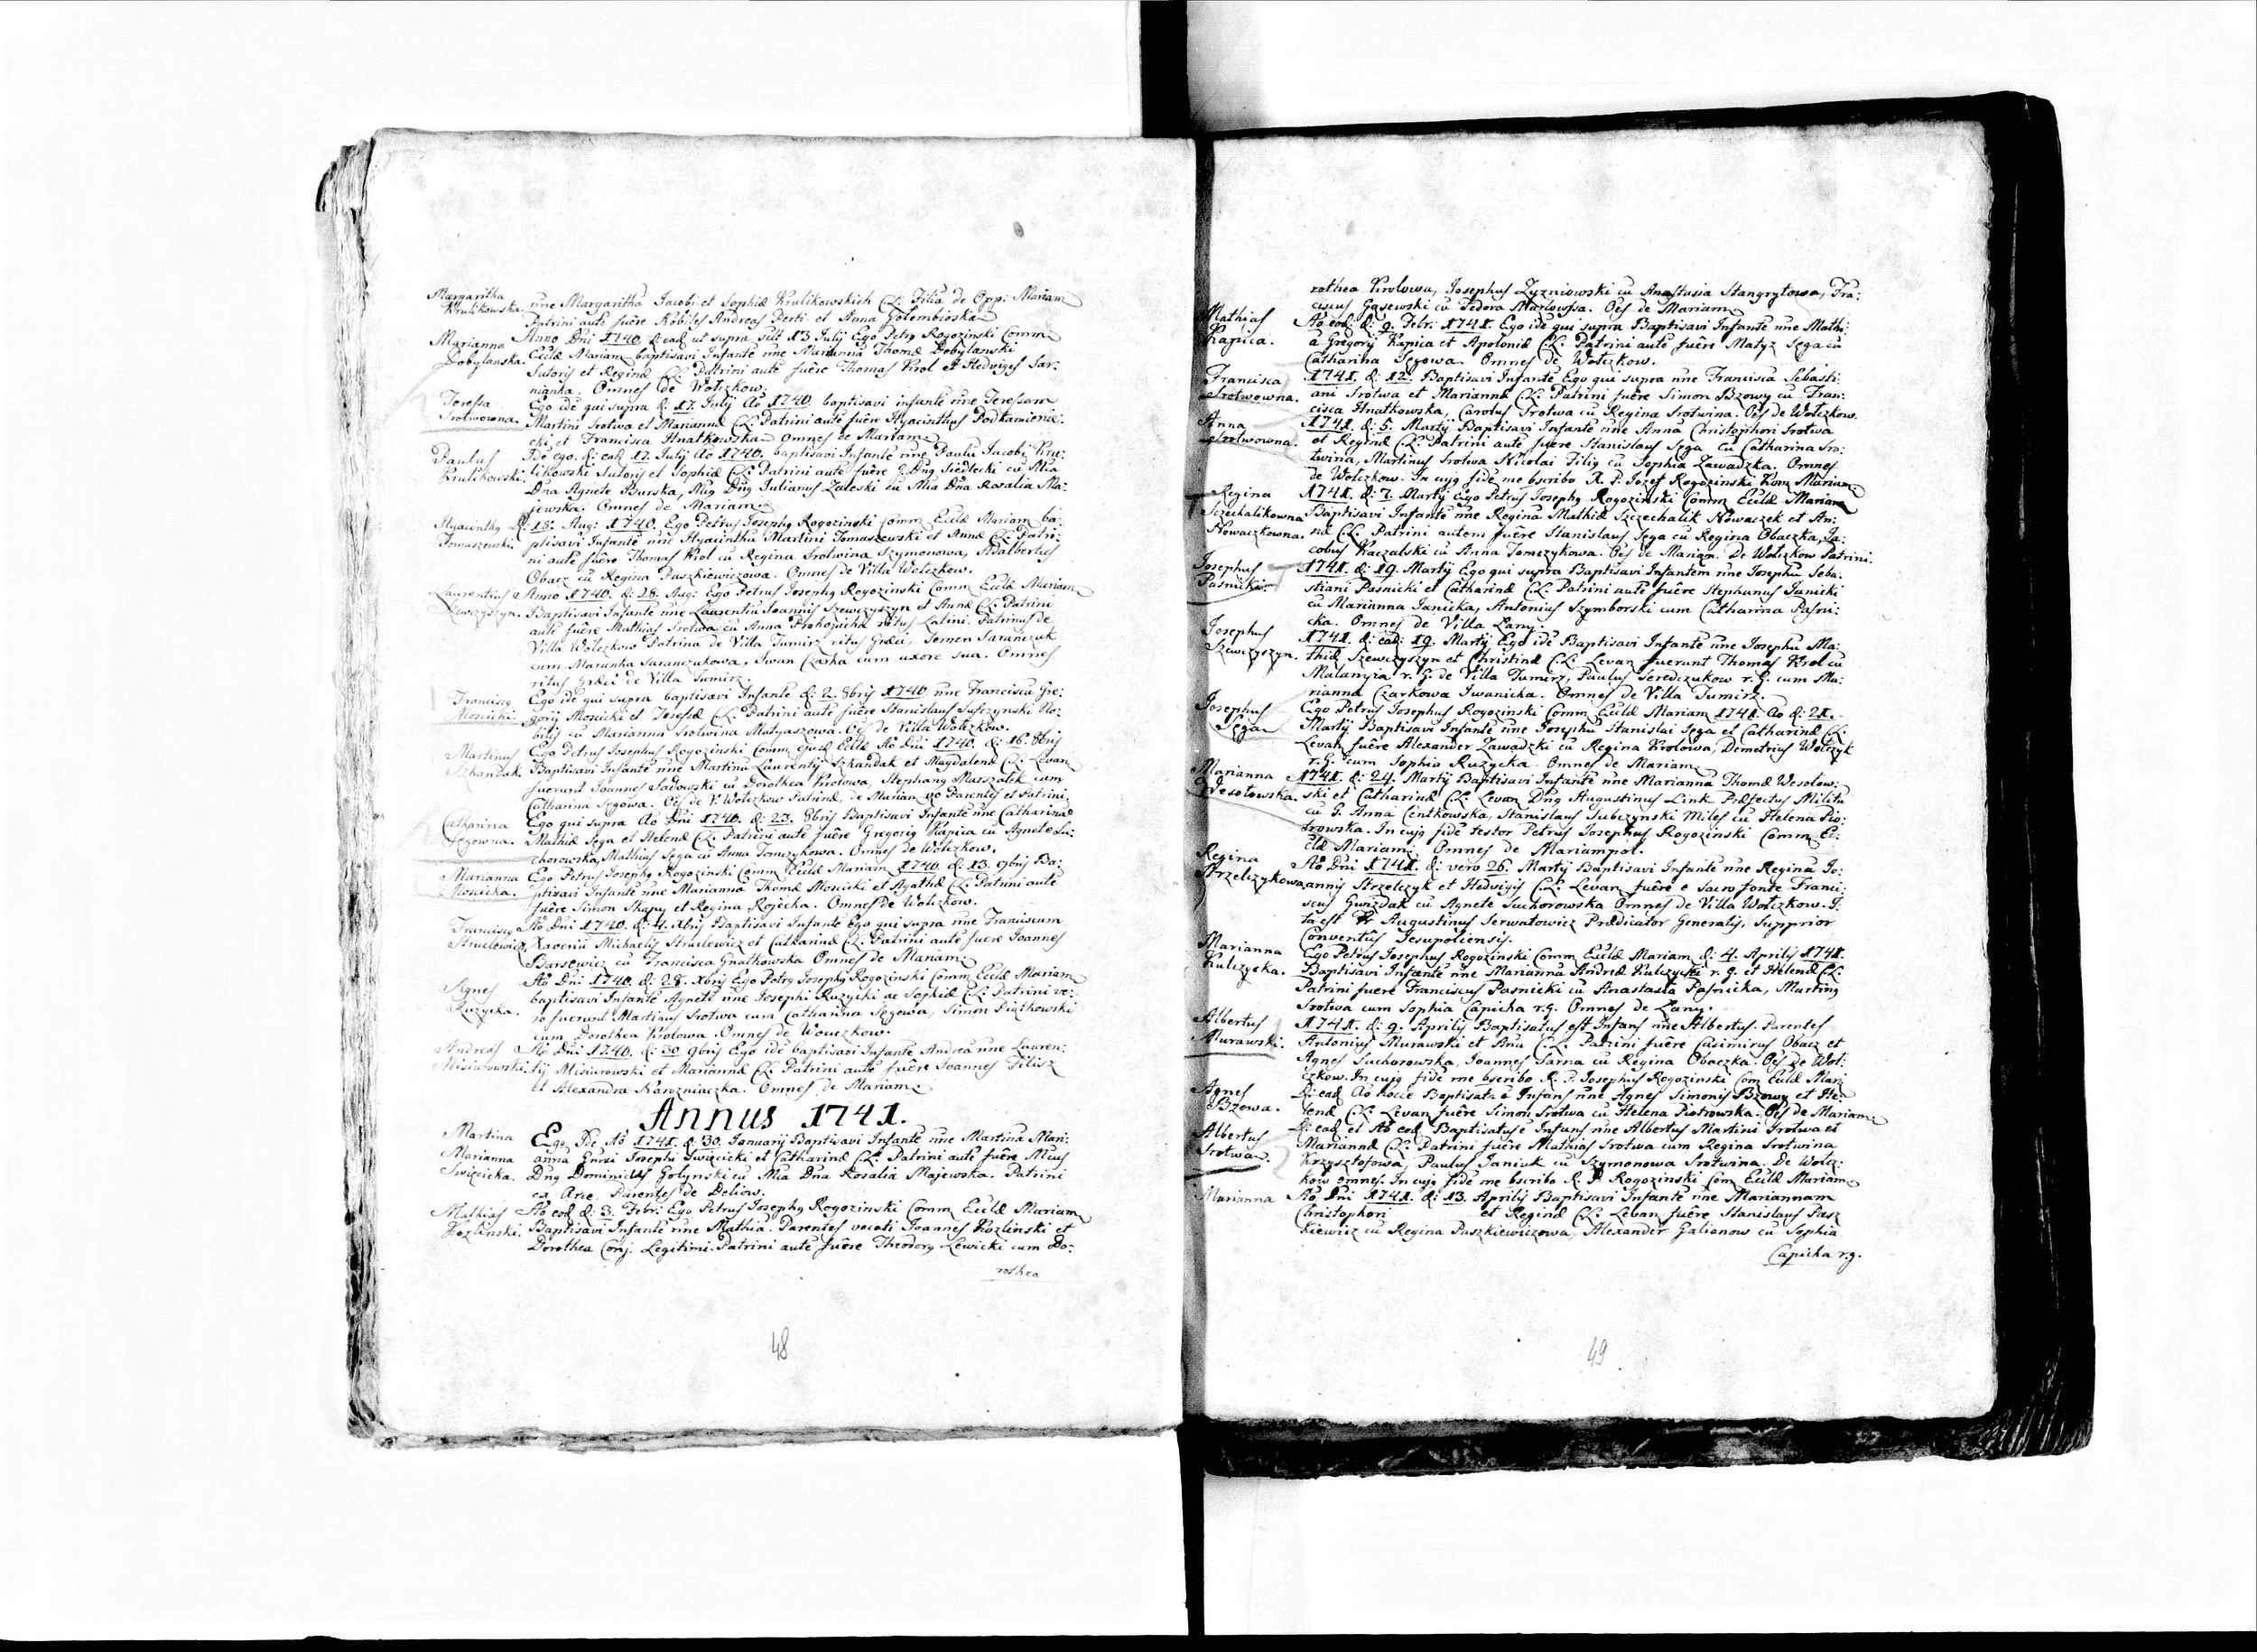 Margaritha
Krulikowska.
nne Margaritha Jacobi et Sophiæ Krulikowskich CL: Filia de Opp: Mariam
Patrini aute fuêre Nobiles Andreas Perti et Anna Golembioska
Marianna
Dobylanska.
Anno Dni 1740 d: ead ut supra 13 Julij Ego Petrg Rogozinski Comm
Eccld Mariam baptisavi Infantē nne Marianna Thomæ Dobylanski
Sutoris et Reginæ CL: Patrini aute fuêre Thomas Krol et Hedviges Sar:
nianka. Omnes de Wołczkow.
Teressa
Srotwowna.
Ego idē qui supra d: 17. Julij Aō 1740 baptisavi infantē nne Teressam
Martini Srotwa et Mariannæ CL: Patrini aute fuêre Hyacinthus Podkamienie:
cki et Francisca Hnatkowska Omnes de Mariam
Paulus
Krulikowski.
Idē ego. d: ead 17. Julij Ao 1740. baptisavi Infantē nne Paulū Jacobi Kru:
likowski Sutoris et Sophiæ CL: Patrini aute fuêre G. Dng Siedlecki cū Mia
Dna Agnete Burska, Mig Dng Julianus Zaleski cū Mia Dna Rosalia Ma:
jewska. Omnes de Mariam:
Hyacinthg
Tomaszewski.
d: 15. Aug: 1740. Ego Petrus Josephg Rogozinski Comm Eccld Mariam ba:
ptisavi Infantē nne Hyacinthū Martini Tomaszewski et Annæ CL: Patri:
ni aute fuêre Thomas Krol cū Regina Srotwina Szymonowa, Adalbertus
Obacz cū Regina Paszkiewiczowa. Omnes de Villa Wołczkow.
Laurentius
Szewczyszyn.
Anno 1740. d: 28. Aug: Ego Petrus Josephg Rogozinski Comm Eccld Mariam
Baptisavi Infantē nne Laurentiū Joannis Szewczyszyn et Annæ CL: Patrini
aute fuêre Mathias Srotwa cū Anna Prokopicha ritus Latini. Patrinus de
Villa Wołczkow Patrina de Villa Tumirz ritus Græci, Semen Saranczuk
cum Marunka Saranczukowa, Iwan Czarka cum uxore sua. Omnes
ritus Græci de Villa Tumirz.
Franciscg
Mosiicki.
Ego idē qui supra baptisavi Infantē d: 2. 8bris 1740. nne Franciscū Gre:
gorij Mosiicki et Teresiæ CL: Patrini aute fuêre Stanislaus Suszynski No:
bilis cū Marianna Srotwina Matyaszowa. Oēs de Villa Wołczkow.
Martinus
Szkandak.
Ego Petrus Josephus Rogozinski Comm ejusd Eccld Aō Dni 1740. d: 16. 8bris
Baptisavi Infantē nne Martinū Laurentij Szkandak et Magdalenæ CL: Levan
fuerunt Joannes Sadowski cū Dorothea Krolowa, Stephang Marszałek cum
Catharina Segowa. Oēs de V. Wołczkow Patrinæ, de Mariam vo Parentes et Patrini
Catharina
Segowna.
Ego qui supra Aō Dni 1740. d: 23. 8bris Baptisavi Infantē nne Catharinā
Mathiæ Sega et Helenæ CL: Patrini aute fuêre Gregorig Kapica cū Agnete Su:
chorowska, Mathias Sega cū Anna Tomczykowa. Omnes de Wołczkow.
Marianna
Mosiicka.
Ego Petrus Josephg Rogozinski Comm Eccld Mariam 1740. d: 13. 9bris Ba:
ptisavi Infantē nne Marianna Thomæ Mosiicki et Agathæ CL: Patrini aute
fuêre Simon Skapy et Regina Rojecka. Omnes de Wołczkow.
Franciscg
Struclewicz
Aō Dni 1740. d: 4. Xbris Baptisavi Infantē Ego qui supra nne Franciscum
Xaveriū Michaelis Struclewicz et Catharinæ CL: Patrini aute fuere Joannes
Barsewicz cū Francisca Gnatkowska Omnes de Mariam:
Agnes
Ruzycka.
Aō Dni 1740. d: 28. Xbris Ego Petrg Josephg Rogozinski Comm Eccld Mariam
baptisavi Infantē Agnetē nne Josephi Ruzycki ac Sophiæ CL: Patrini ve:
ro fuerunt Martinus Srotwa cum Catharina Segowa, Simon Piątkowski
cum Dorothea Krolowa. Omnes de Wołczkow.
Andreas
Misiurowski.
Aō Dni 1740. d: 30 9bris Ego idē baptisavi Infantē Andreā nne Lauren:
tij Misiurowski et Mariannæ CL: Patrini aute fuêre Joannes Filisz
et Alexandra Karozniaczka. Omnes de Mariam:
Annus 1741.
Martina
Marianna
Swięcicka.
Ego Idē Aō 1741. d: 30. Januarij Baptisavi Infantē nne Martinā Mari:
anna Gnrsi Josephi Swięcicki et Catharinæ CL: Patrini aute fuêre Micus
Dng Dominicus Gołynski cū Mia Dna Rosalia Majewska. Patrini
ex Arce. Parentes de Deliow.
Mathias
Kozlinski.
Aō eod d: 3. Febr: Ego Petrus Josephg Rogozinski Comm Eccld Mariam
Baptisavi Infantē nne Mathiā. Parentes vocati Joannes Kozlinski et
Dorothea Conj. Legitimi. Patrini aute fuêre Theodorg Lewicki cum Do:
rothea
48
rothea Krolowa, Josephus Zyzniowski cū Anastasia Stangrytowa, Fra:
ciscus Gasewski cū Fedora Markowska. Oēs de Mariam
Mathias
Kapica.
Aō eod: d: 9. Febr: 1741. Ego idē qui supra Baptisavi Infantē nne Mathi:
ā Gregorij Kapica et Apoloniæ CL: Patrini aute fuêre Matyz Sega cū
Catharina Segowa. Omnes de Wołczkow.
Francisca
Srotwowna.
1741. d: 12. Baptisavi Infantē Ego qui supra nne Francisca Sebasti:
ani Srotwa et Mariannæ CL: Patrini fuêre Simon Bzowy cū Fran:
cisca Hnatkowska, Carolus Srotwa cū Regina Srotwina. Oēs de Wołczkow.
Anna
Srotwowna.
1741. d: 5. Martij Baptisavi Infantē nne Anna Christophori Srotwa
et Reginæ CL: Patrini aute fuêre Stanislaus Sega cū Catharina Sro:
twina, Martinus Srotwa Nicolai Filig cū Sophia Zawadzka. Omnes
de Wołczkow. In cujg fidē me bscribo R. P. Jozef Rogozinski Kom Mariam:
Regina
Szczechalikowna
Nowaczkowna.
1741. d: 7. Martij Ego Petrus Josephg Rogozinski Comm Eccld Mariam
Baptisavi Infantē nne Regina Mathiæ Szczechalik Nowaczek et An:
næ CL: Patrini autem fuêre Stanislaus Sega cū Regina Obaczka, Ja:
cobus Kaczalski cū Anna Tomczykowa. Oēs de Mariam. De Wołczkow Patrini.
Josephus
Pasnicki.
1741. d: 19. Martij Ego qui supra Baptisavi Infantem nne Josephū Seba:
stiani Pasnicki et Catharinæ CL: Patrini aute fuêre Stephanus Janicki
cū Marianna Janicka, Antonius Szymborski cum Catharina Pasni:
cka. Omnes de Villa Łany.
Josephus
Szewczyszyn.
1741. d: ead: 19. Martij Ego idē Baptisavi Infantē nne Josephū Ma:
thiæ Szewczyszyn et Christinæ CL: Levan fuerunt Thomas Krol cū
Małanyia r. G. de Villa Tumirz, Paulus Seredczukow r. G. cum Ma:
rianna Czarkowa Iwanicha. Omnes de Villa Tumirz.
Josephus
Sega
Ego Petrus Josephus Rogozinski Comm Eccld Mariam 1741. Aō d: 21.
Martij Baptisavi Infantē nne Josephū Stanislai Sega et Catharinæ CL:
Levan fuêre Alexander Zawadzki cū Regina Krolowa, Demetrius Wołczyk
r. G. cum Sophia Ruzycka. Omnes de Mariam
Marianna
Wesołowska.
1741. d: 24. Martij Baptisavi Infantē nne Marianna Thomæ Wesołow:
ski et Catharinæ CL: Levan Dng Augustinus Link Præfectus Militū
cū G. Anna Centkowska, Stanislaus Subczynski Miles cū Helena Pio:
trowska. In cujg fidē testor Petrus Josephus Rogozinski Comm Ec:
cld Mariam: Omnes de Mariampol.
Regina
Strzelczykowa
Aō Dni 1741. d: vero 26. Martij Baptisavi Infantē nne Regina Jo:
annis Strzelczyk et Hedvigis CL: Levan fuêre e sacro fonte Franci:
scus Gwizdak cū Agnete Suchorowska Omnes de Villa Wołczkow. I:
ta est Fr Augustinus Serwatowicz Prædicator Generalis, Supprior
Conventus Jesupoliensis.
Marianna
Kulczycka.
Ego Petrus Josephus Rogozinski Comm Eccld Mariam d: 4. Aprilis 1741.
Baptisavi Infantē nne Marianna Andreæ Kulczycki r. G. et Helenæ CL:
Patrini fuere Franciscus Pasnicki cū Anastasia Pasnicka, Marting
Srotwa cum Sophia Capicha r.G. Omnes de Łany.
Albertus
Murawski.
1741. d: 9. Aprilis Baptisatus est Infans nne Albertus. Parentes
Antonius Murawski et Anā CL: Patrini fuêre Casimirus Obacz et
Agnes Suchorowska, Joannes Sarna cū Regina Obaczka. Oēs de Woł:
czkow. In cujg fidē me bscribo R. P. Josephus Rogozinski Com Eccld Mari:
Agnes
Bzowa.
d: ead Ao hocce Baptisata ē Infans nne Agnes Simonis Bzowy et He:
lenæ CL: Levan fuêre Simon Srotwa cū Helena Piotrowska. Oēs de Mariam:
Albertus
Srotwa.
d: ead et Aō eod Baptisatus ē Infans nne Albertus Martini Srotwa et
Mariannæ CL: Patrini fuêre Mathias Srotwa cum Regina Srotwina
Krzysztofowa, Paulus Janiuk cū Szymonowa Srotwina. De Wołcz:
kow omnes. In cujg fidē me bscribo R. P. Rogozinski Com Eccld Mariam
Marianna
Aō Dni 1741. d: 13. Aprilis Baptisavi Infantē nne Mariannam
Christophori et Reginæ CL: Levan fuêre Stanislaus Pasz
kiewicz cū Regina Paszkiewiczowa, Alexander Galianow cū Sophia
Capicha r.g.
49